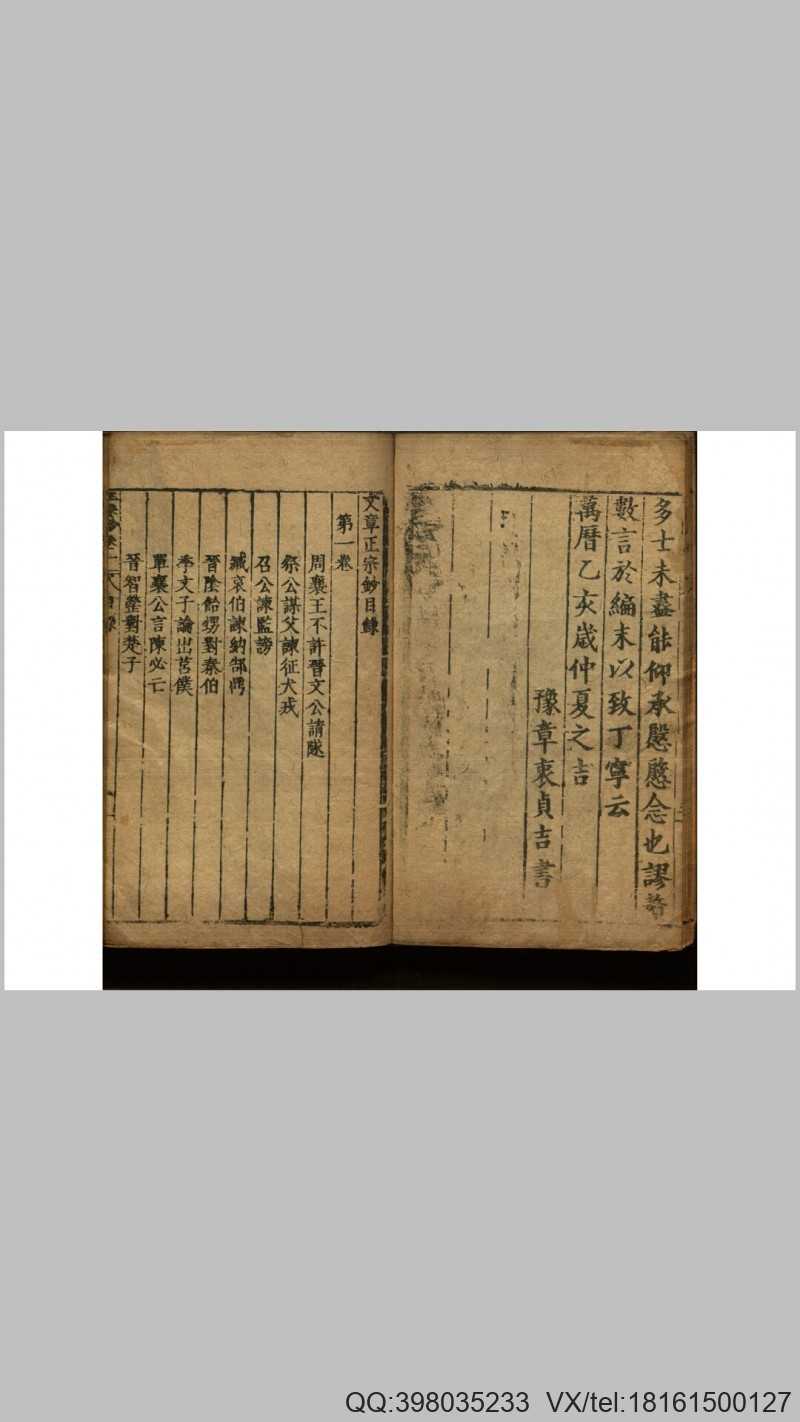 多士未盡能仰承慇慇念也謬
數言於編末以致丁寧云
萬曆乙亥歲仲夏之吉
豫章衷貞吉書
文章正宗鈔目錄
第一卷
周襄王不許晉文公請隧
祭公謀父諫征犬戎
召公諫監謗
臧哀伯諫納郜鼎
晉陰飴甥對秦伯
季文子論出莒僕
單襄公言陳必亡
晉智罃對楚子
QQ:398035233 VX/tel:18161500127